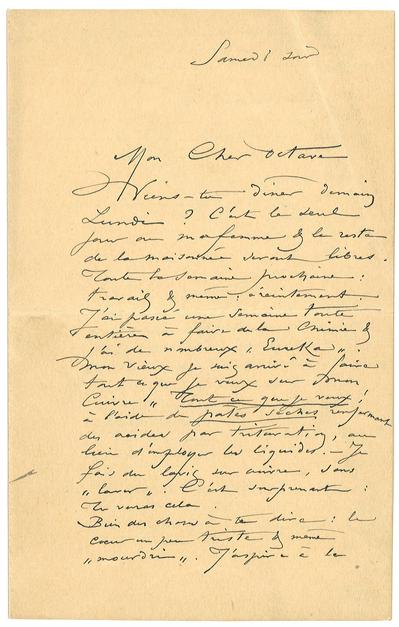 Samedi soir
Mon Cher Octave
Viens-tu diner demain
Lundi ? C'est le seul
jour ou ma femme & le reste
de la maisonnée seront libres.
Toute la semaine prochaine :
travail & même : éreintement.
J'ai passé une semaine toute
entière à faire de la Chimie &
j'ai de nombreux „ Eureka ".
Mon vieux je suis arrivé à faire
tout ce que je veux sur mon
Cuivre „ Tout ce que je veux !
à l'aide de pates sèches renfermant
des acides par trituration, au
lieu d'employer les liquides. — Je
fais du lavis sur cuivre, sans
„ laver ". C'est surprenant :
Tu verras cela.
Bien des choses à te dire : le
cœur un peu triste & même
J'aspire à la